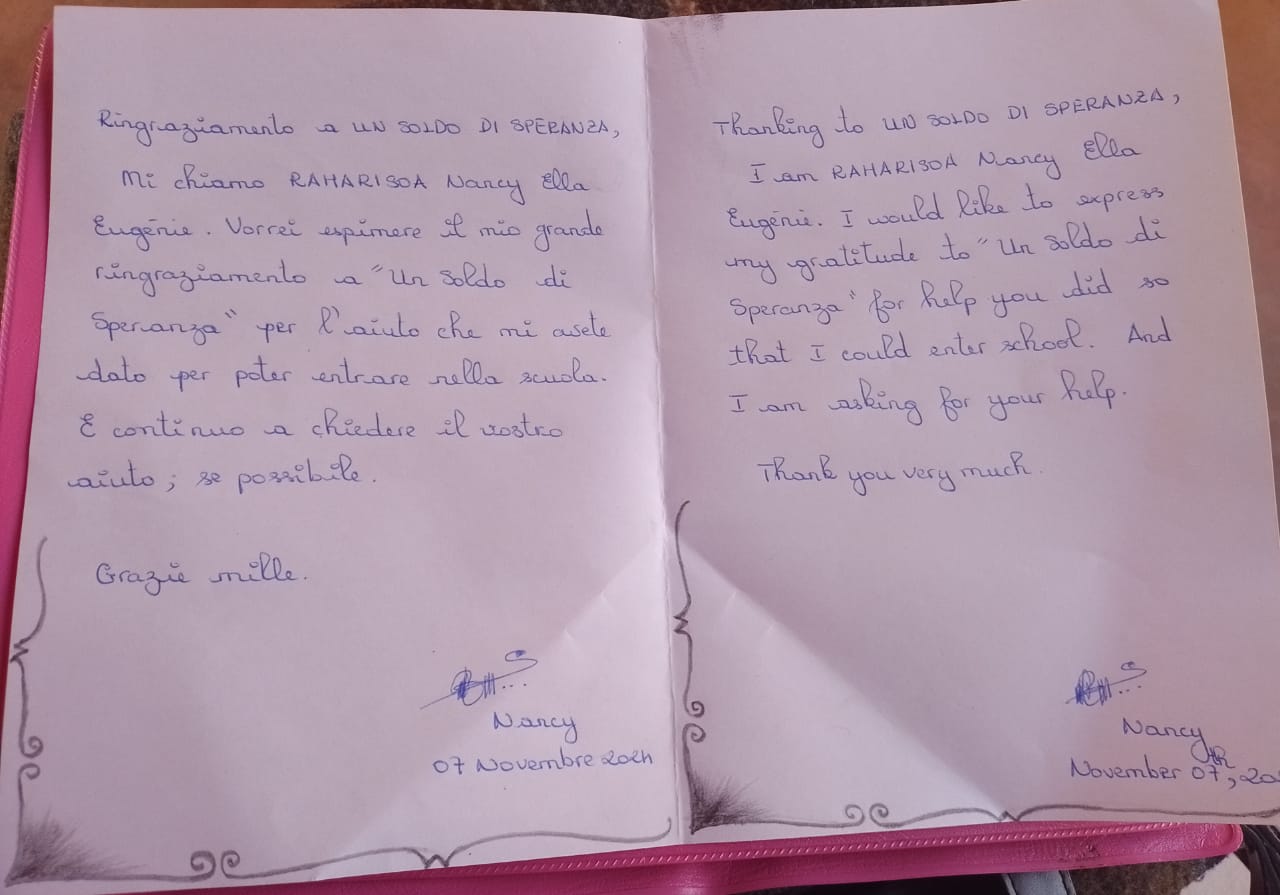 Ringraziamento a UN SOLDO DI SPERANZA,
Mi chiamo RAHARISOA Nancy Ella
Eugénie. Vorrei espimere il mio grande
ringraziamento a "Un Soldo di
Speranza" per l'aiuto che mi avete
dato per poter entrare nella scuola.
E continuo a chiedere il vostro
aiuto; se possibile.
Grazie mille.
Nancy
07 Novembre 2024
Thanking to UN SOLDO DI SPERANZA,
I am RAHARISOA Nancy Ella
Eugénie. I would like to express
my gratitude to "Un Soldo di
Speranza" for help you did so
that I could enter school. And
I am asking for your help.
Thank you very much.
Nancy
November 07th, 20